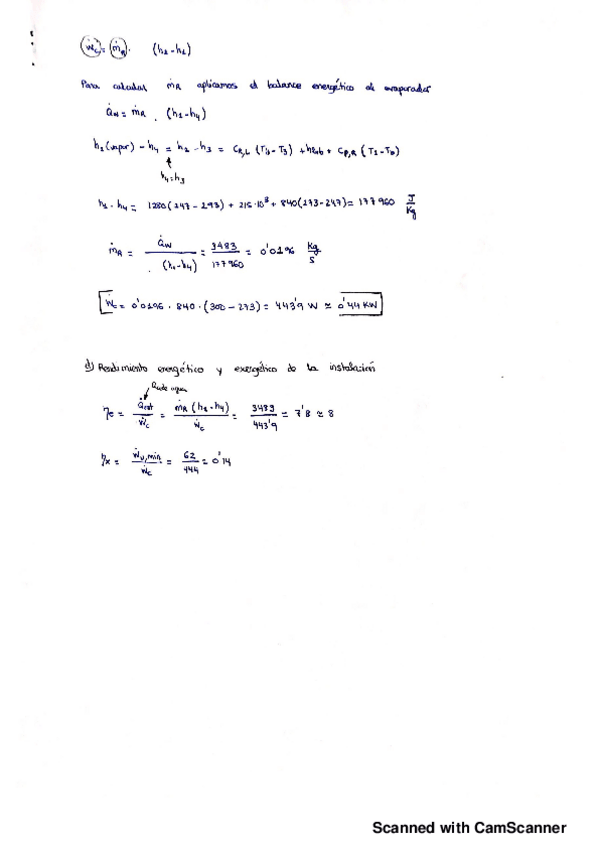 Ẇc = ṁR · (h2 - h1)
Para calcular ṁR aplicamos el balance energético al evaporador
Q̇w = ṁR . (h1 - h4)
h1 (vapor) - h4 = h1 - h3 = CR,L (T4 - T3) + hlab + CP,R (T1 - T0)
h4 = h3
h1 - h4 = 1280 (247 - 293) + 216·10³ + 840 (273 - 247) = 177 960 J/Kg
ṁR = Q̇w / (h1 - h4) = 3483 / 177 960 = 0'0196 Kg/s
Ẇc = 0'0196 · 840 · (300 - 273) = 443'9 W ≃ 0'44 KW
d) Rendimiento energético y exergético de la instalación
Q de agua
ηe = Q̇ext / Ẇc = ṁR (h1 - h4) / Ẇc = 3483 / 443'9 = 7'8 ≃ 8
ηx = Ẇu,min / Ẇc = 62 / 444 = 0'14
Scanned with CamScanner